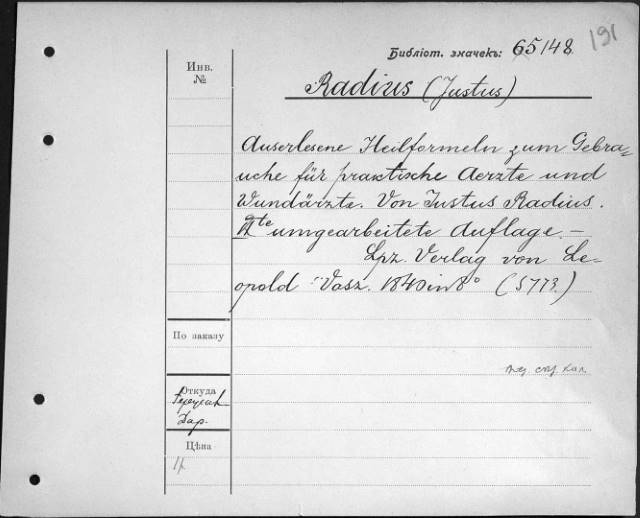 191
Библіот. значекъ: 65/148
Инв.
№
Radius (Justus)
Auserlesene Heilformeln zum Gebra-
uche für praktische Aerzte und
Wundärzte. Von Justus Radius.
umgearbeitete Auflage. –
Lpz. Verlag von Le-
opold Vosz. 1840 in 8° (5773.)
По заказу
Откуда
Дар.
Цѣна